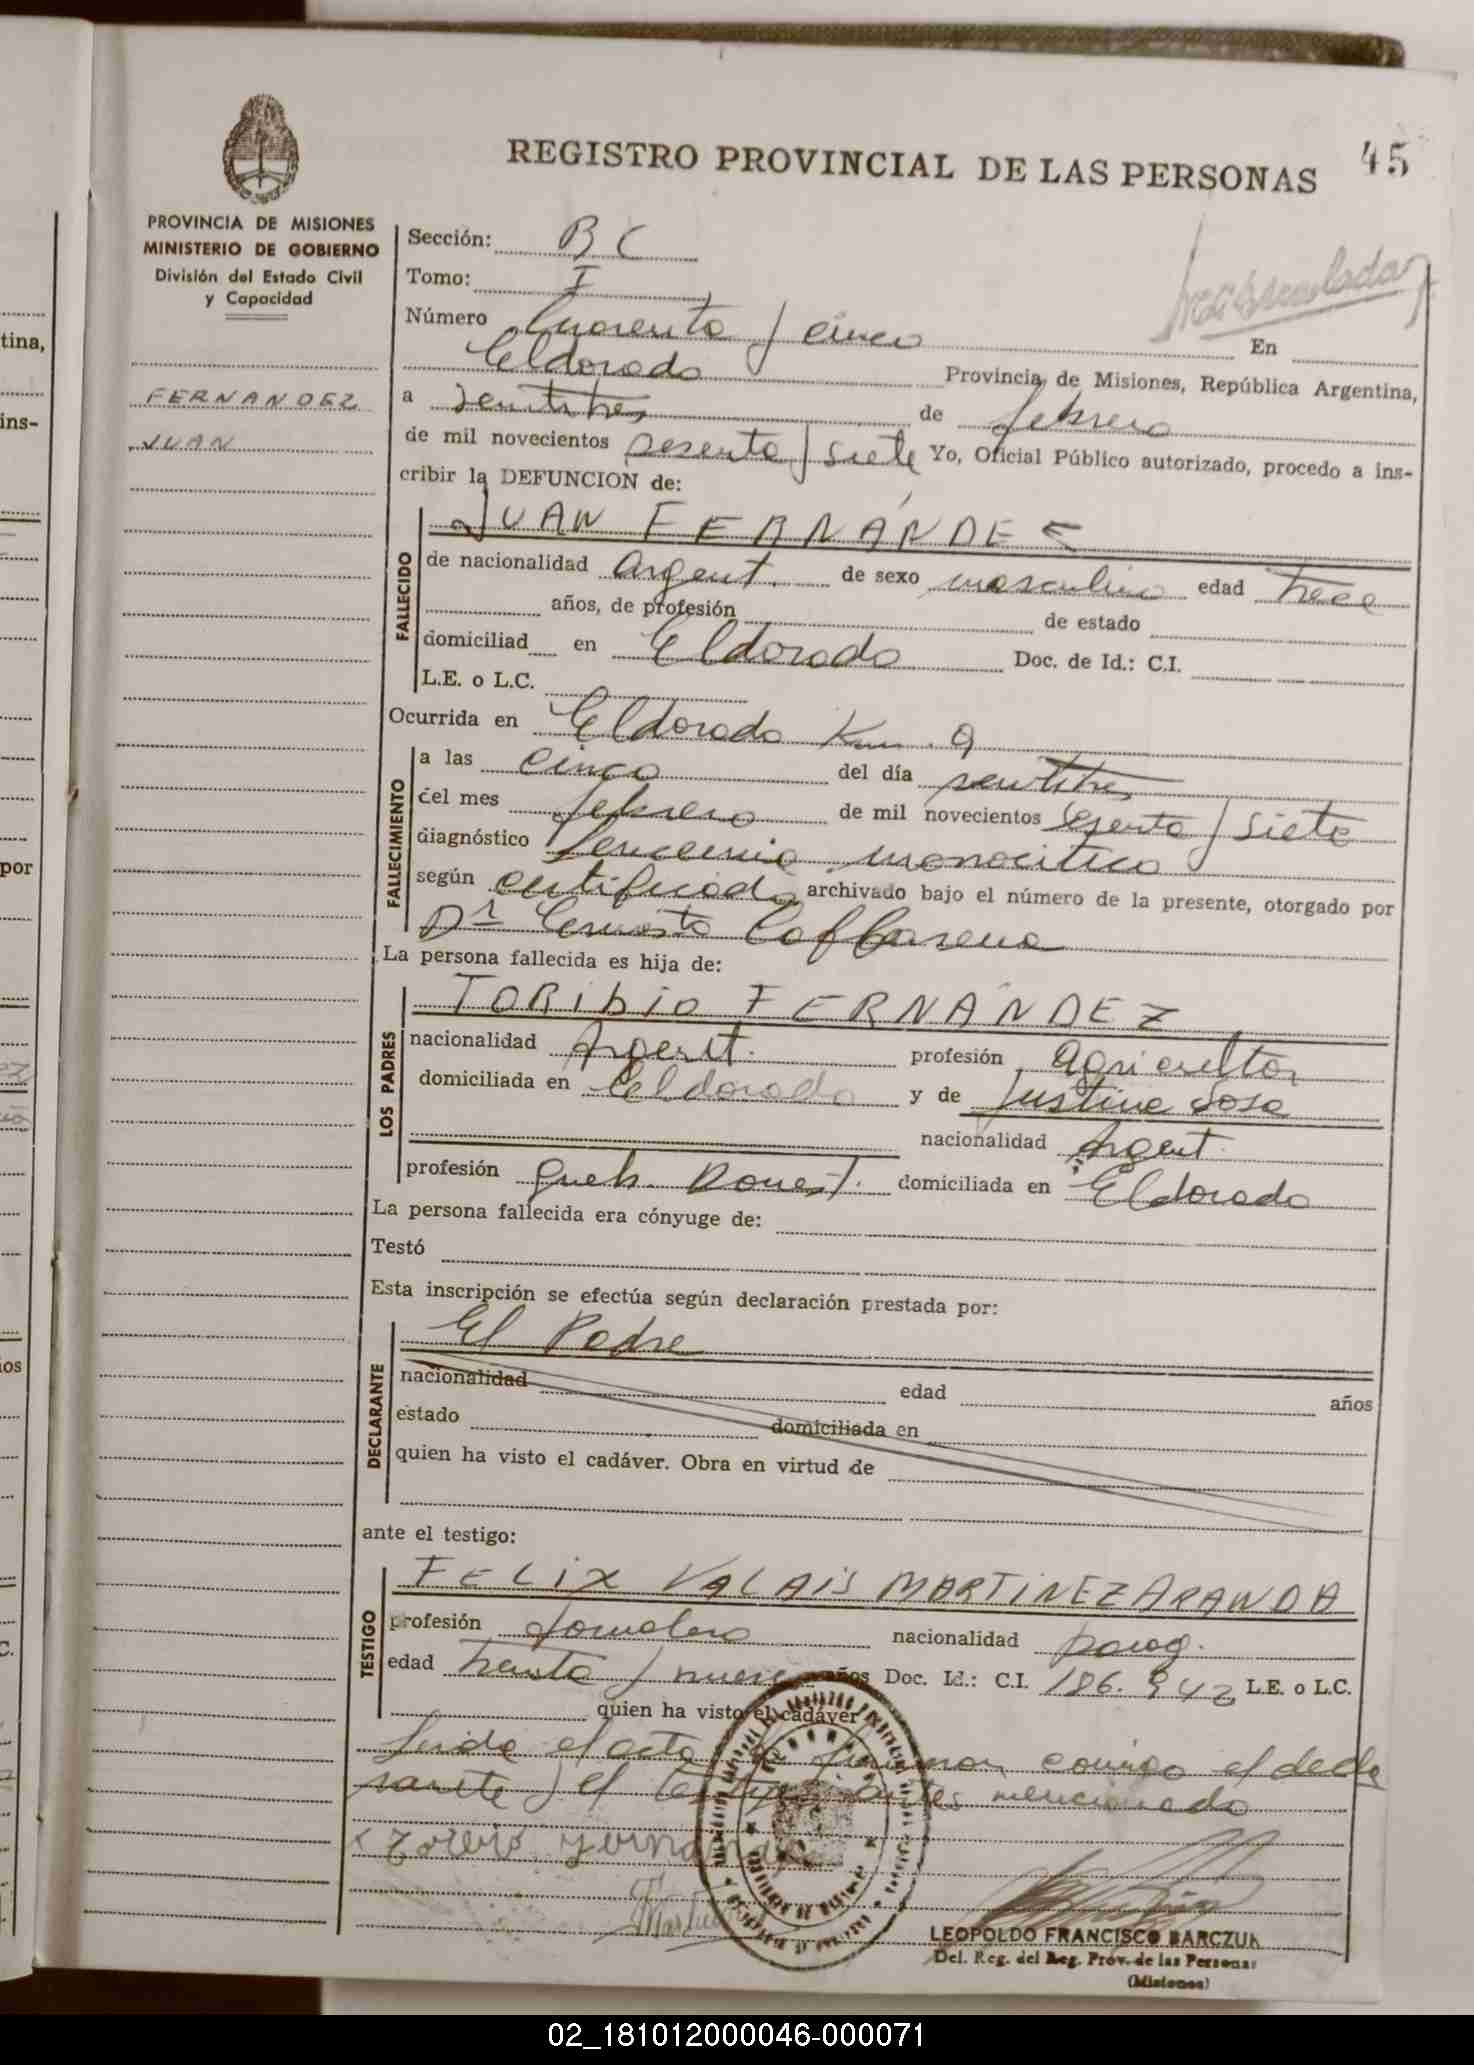 45
REGISTRO PROVINCIAL DE LAS PERSONAS
PROVINCIA DE MISIONES
MINISTERIO DE GOBIERNO
División del Estado Civil
y Capacidad
FERNANDEZ
JUAN
Sección: B C
Tomo: I
Número Cuarenta y cinco En
Eldorado Provincia de Misiones, República Argentina,
a veintitres de febrero
de mil novecientos sesenta y siete Yo, Oficial Público autorizado, procedo a ins-
cribir la DEFUNCION de:
FALLECIDO
JUAN FERNÁNDEZ
de nacionalidad argent. de sexo masculino edad trece
años, de profesión de estado
domiciliad en Eldorado Doc. de Id.: C.I.
L.E. o L.C.
Ocurrida en Eldorado Km. 9
FALLECIMIENTO
a las cinco del día veintitres
del mes febrero de mil novecientos sesenta y siete
diagnóstico Leucemia monocitica
según certificado archivado bajo el número de la presente, otorgado por
Dr Ernesto
La persona fallecida es hija de:
LOS PADRES
TORIBIO FERNÁNDEZ
nacionalidad Argent. profesión agricultor
domiciliada en Eldorado y de Justina Sosa
nacionalidad Argent.
profesión queh. Domest. domiciliada en Eldorado
La persona fallecida era cónyuge de:
Testó
Esta inscripción se efectúa según declaración prestada por:
DECLARANTE
El Padre
nacionalidad edad años
estado domiciliada en
quien ha visto el cadáver. Obra en virtud de
ante el testigo:
TESTIGO
FELIX VALAIS MARTINEZ ARANDA
profesión Jornalero nacionalidad parag.
edad treinta y nueve años Doc. Id.: C.I. 186.942 L.E. o L.C.
quien ha visto el cadáver
Leida el acta la firman conmigo el decla
rante y el testigo antes mencionado
LEOPOLDO FRANCISCO BARCZUK
Del. Reg. del Reg. Prov. de las Personas
(Misiones)
02_181012000046-000071